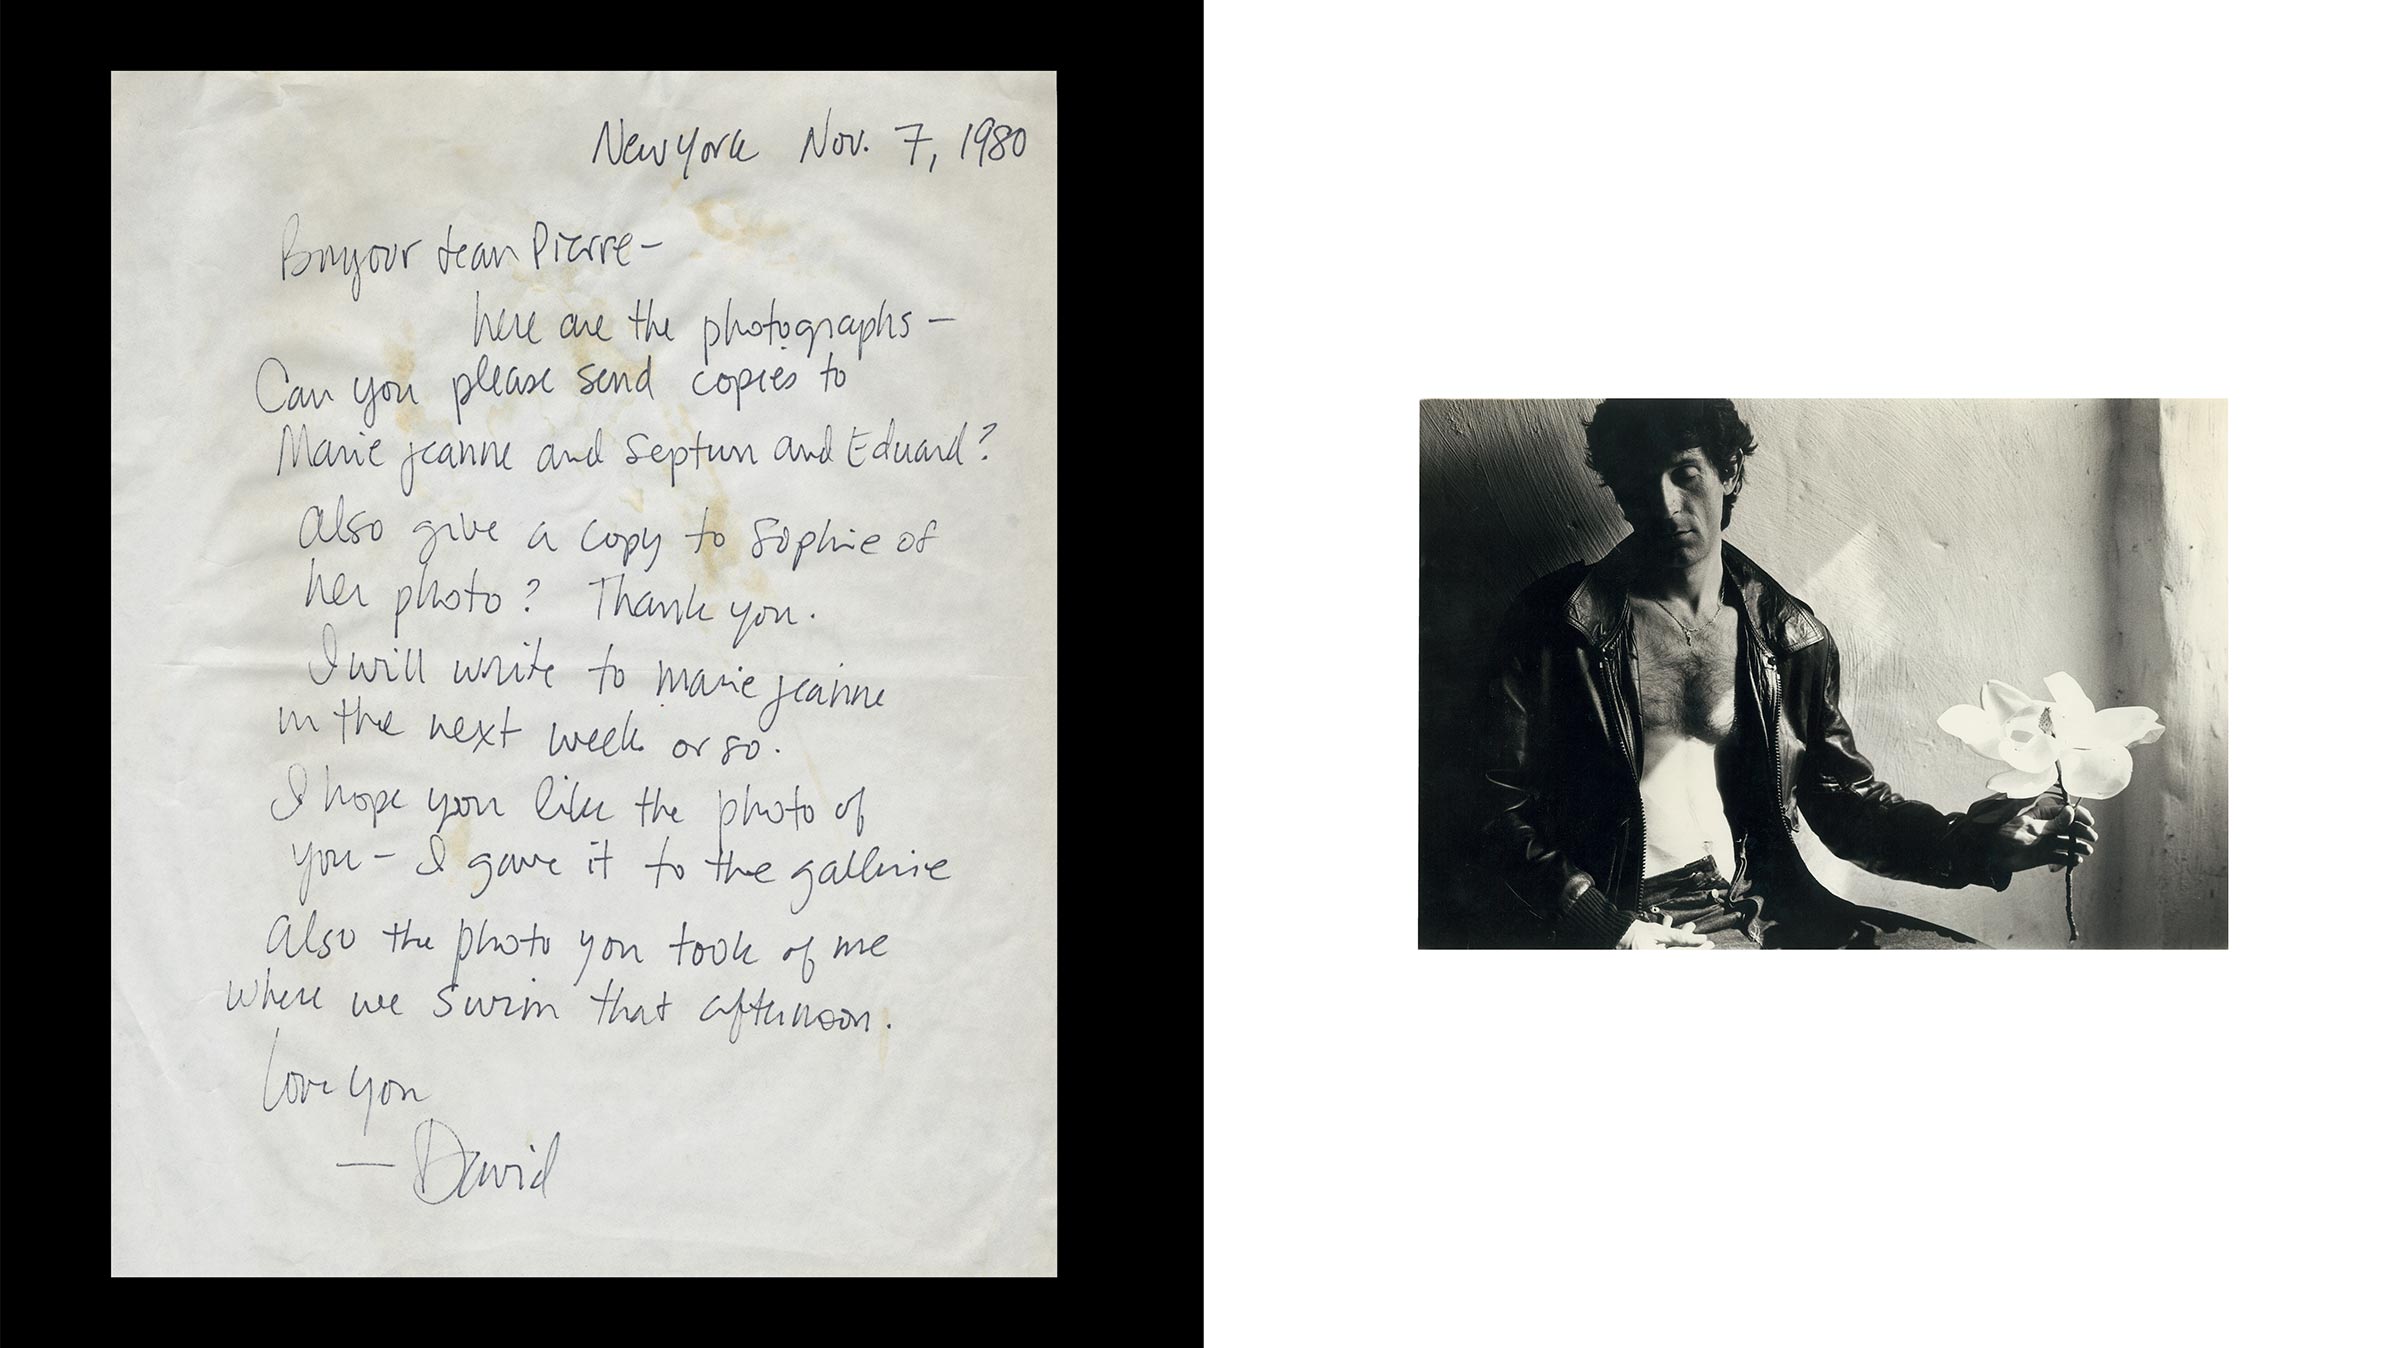 New York Nov. 7, 1980
Bonjour Jean Pierre —
here are the photographs —
Can you please send copies to
Marie Jeanne and Septum and Eduard?
Also give a copy to Sophie of
her photo? Thank you.
I will write to Marie Jeanne
in the next week or so.
I hope you like the photo of
you — I gave it to the gallerie
also the photo you took of me
where we swim that afternoon.
Love you
— David